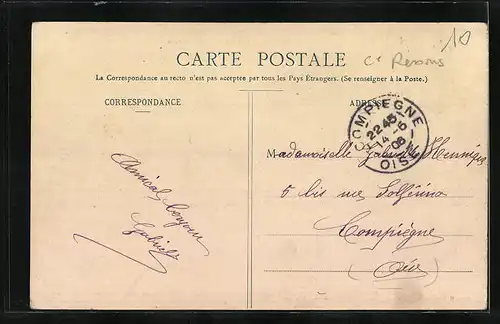 10
CARTE POSTALE
La Correspondance au recto n'est pas acceptée par tous les Pays Étrangers. (Se renseigner à la Poste.)
CORRESPONDANCE
ADRESSE
COMPIEGNE
22 45
14 - 6
06
OISE
Amical bonjour
Gabriel
Mademoiselle Gabrielle Hennique
6 bis rue Solférino
Compiègne
(Oise)